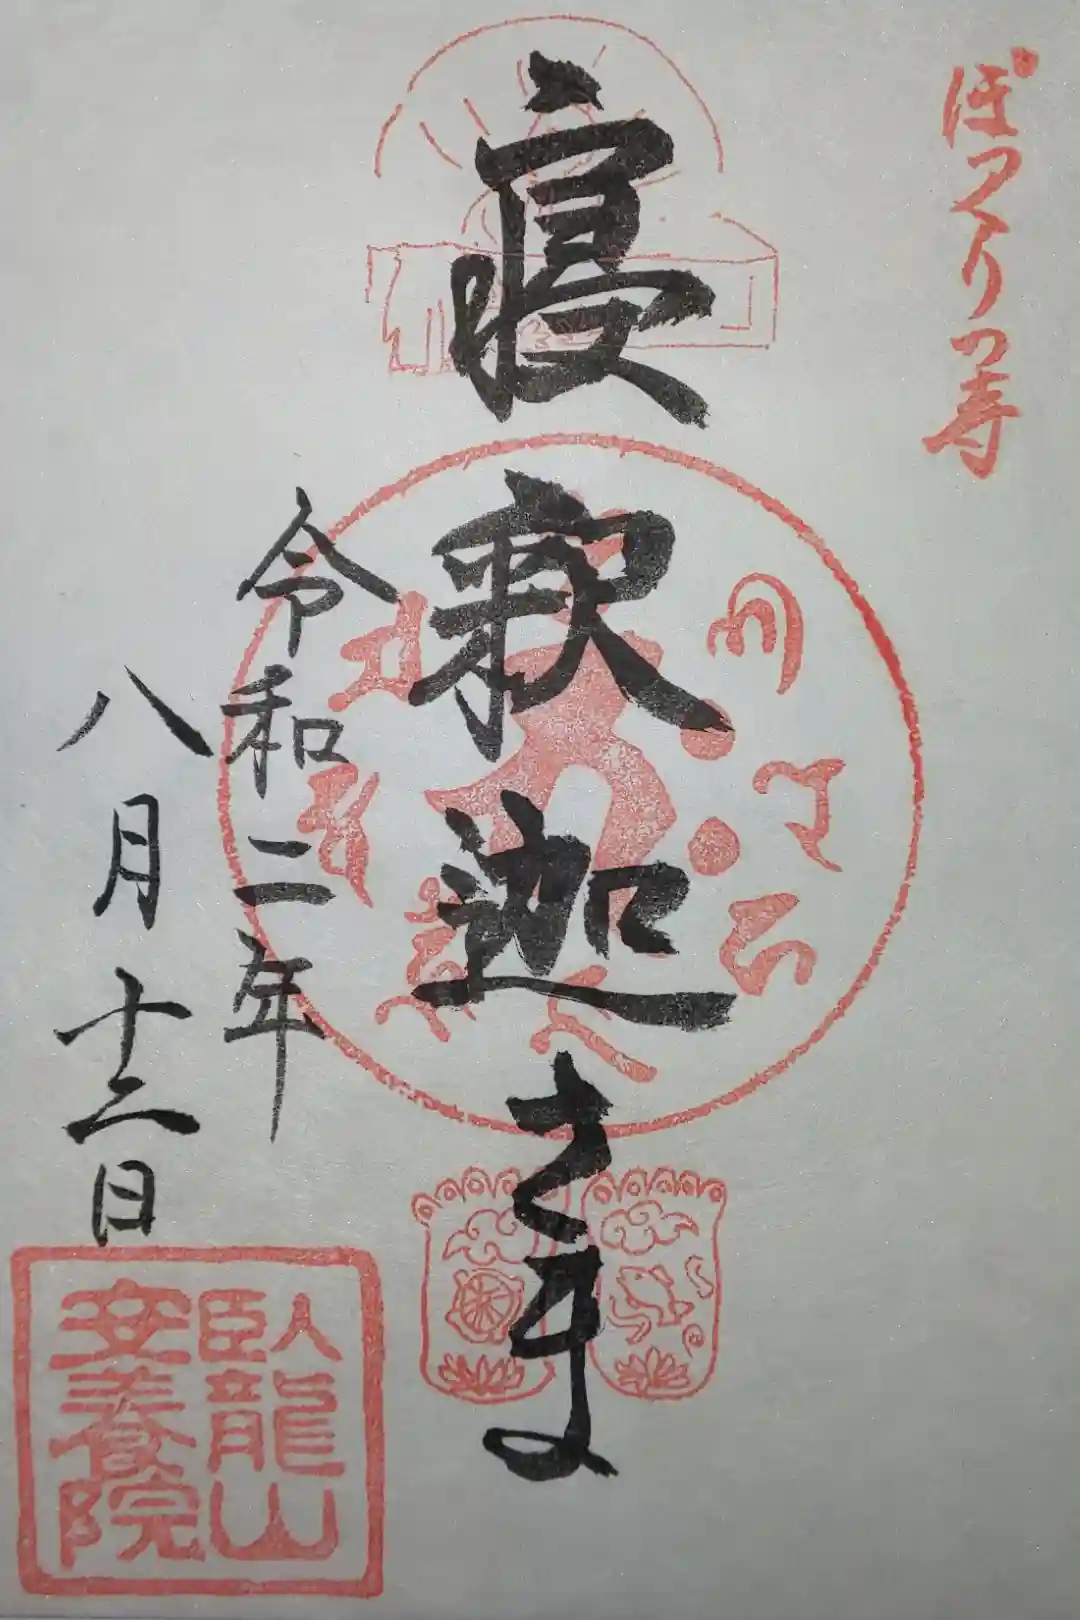 ぽっくり寺
寝釈迦さま
令和二年
八月十二日
臥龍山
安養院